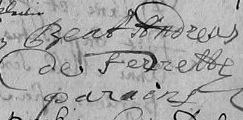 Beat Andreas
de Ferrette
parains